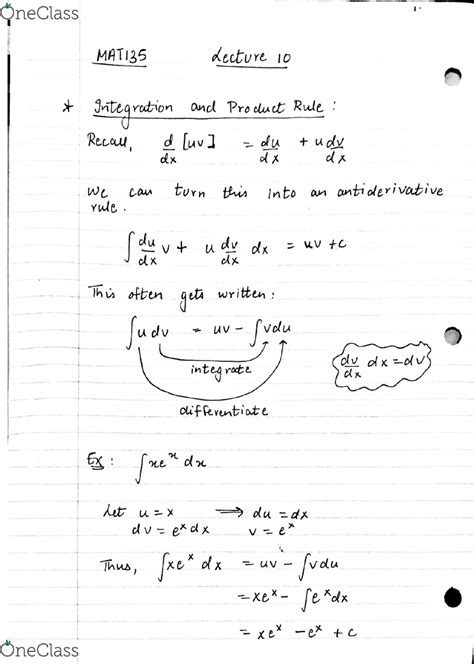 OneClass
MAT135 Lecture 10
* Integration and Product Rule :
Recall, d/dx [uv] = du/dx + u dv/dx
We can turn this into an antiderivative
rule.
∫ du/dx v + u dv/dx dx = uv + c
This often gets written :
∫u dv = uv - ∫vdu
integrate
dv/dx dx = dv
differentiate
Ex : ∫xe^x dx
Let u = x ⟹ du = dx
dv = e^x dx v = e^x
Thus, ∫xe^x dx = uv - ∫vdu
= xe^x - ∫e^x dx
= xe^x - e^x + c
OneClass